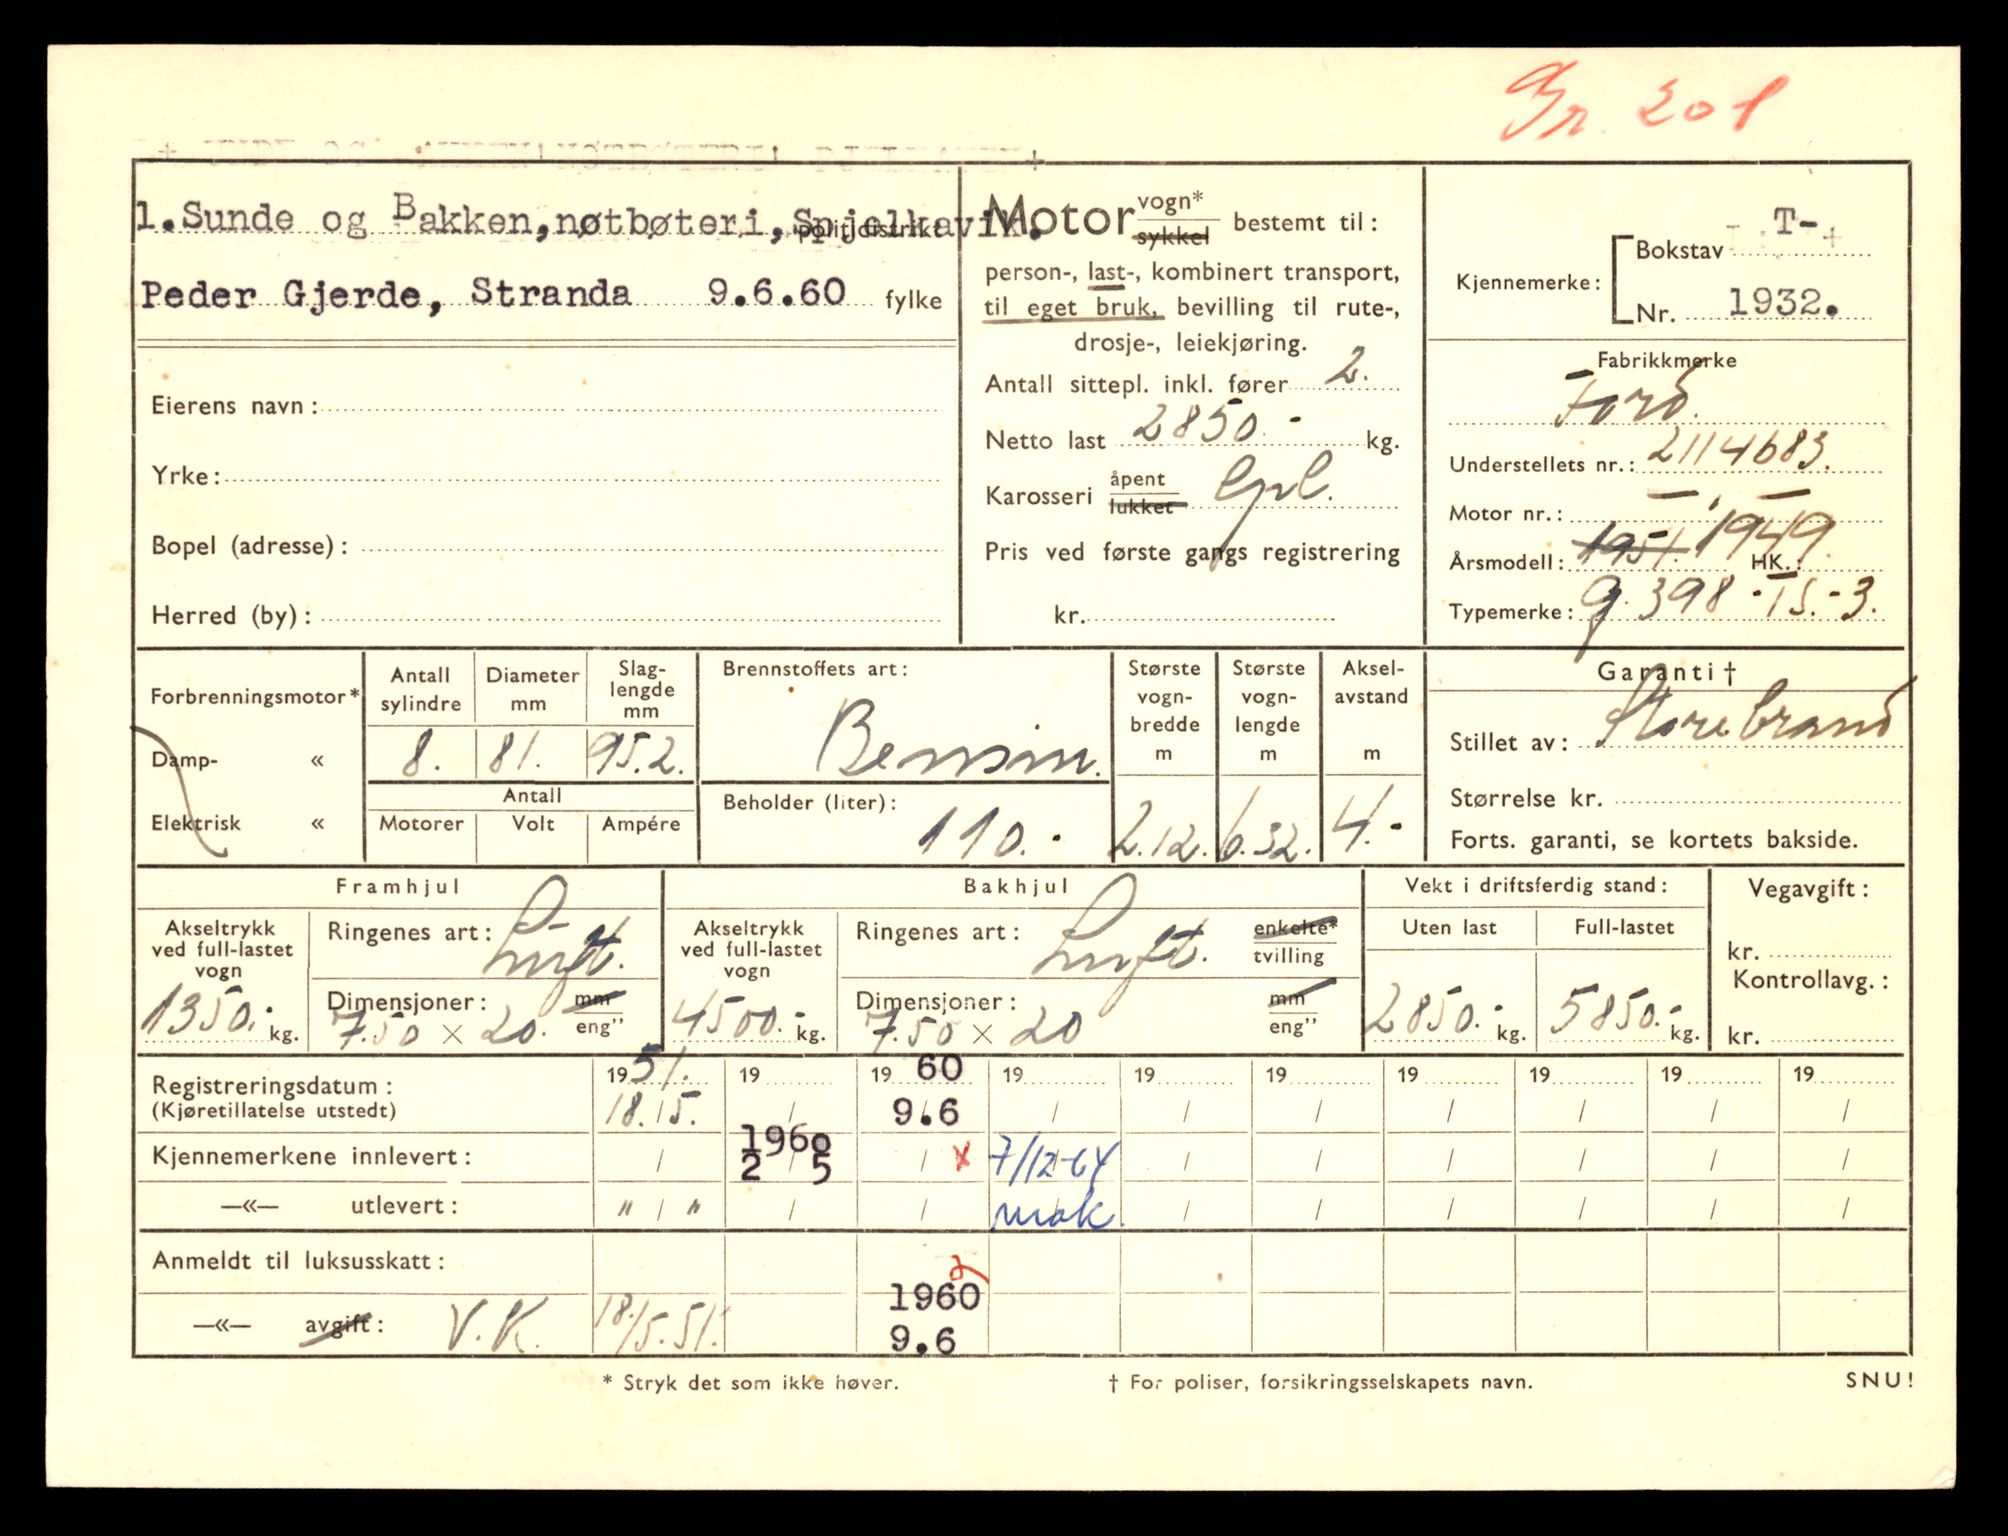 Gr. 201
1. Sunde og Bakken, nøtbøteri, Spjelkavik.
politidistrikt
Peder Gjerde, Stranda 9.6.60 fylke
Eierens navn:
Yrke:
Bopel (adresse):
Herred (by):
Motor vogn* sykkel bestemt til:
person-, last-, kombinert transport,
til eget bruk, bevilling til rute-,
drosje-, leiekjøring.
Antall sittepl. inkl. fører 2.
Netto last 2850.- kg.
Karosseri åpent lukket
Pris ved første gangs registrering
kr.
Kjennemerke: Bokstav T-
Nr. 1932.
Fabrikkmerke
Ford.
Understellets nr.: 2114683.
Motor nr.: — —
Årsmodell: 1951. 1949. HK.:
Typemerke: g. 398 - IS. - 3.
Forbrenningsmotor*
Damp- «
Elektrisk «
Antall sylindre 8.
Diameter mm 81.
Slaglengde mm 95.2.
Antall
Motorer Volt Ampére
Brennstoffets art:
Bensin.
Beholder (liter):
110.-
Største vogn-bredde m 2.12.
Største vogn-lengde m 6.32.
Aksel-avstand m 4.-
Garanti †
Stillet av: Storebrand
Størrelse kr.
Forts. garanti, se kortets bakside.
Framhjul
Akseltrykk ved full-lastet vogn 1350.- kg.
Ringenes art: Luft.
Dimensjoner: 7.50 × 20. mm eng”
Bakhjul
Akseltrykk ved full-lastet vogn 4500.- kg.
Ringenes art: Luft. enkelte* tvilling
Dimensjoner: 7.50 × 20 mm eng”
Vekt i driftsferdig stand:
Uten last 2850.- kg.
Full-lastet 5850.- kg.
Vegavgift:
kr.
Kontrollavg.:
kr.
Registreringsdatum: 1951. 19 1960 19 19 19 19 19 19 19
(Kjøretillatelse utstedt) 18.5. / 9.6 / / / / / / /
Kjennemerkene innlevert: / 1960 2/5 / x 7/12-64 / / / / / /
—«— utlevert: " / " / / mak. / / / / / /
Anmeldt til luksusskatt:
—«— avgift: V.K. 18./5.51. 1960 9.6
* Stryk det som ikke høver.
† For poliser, forsikringsselskapets navn.
SNU!